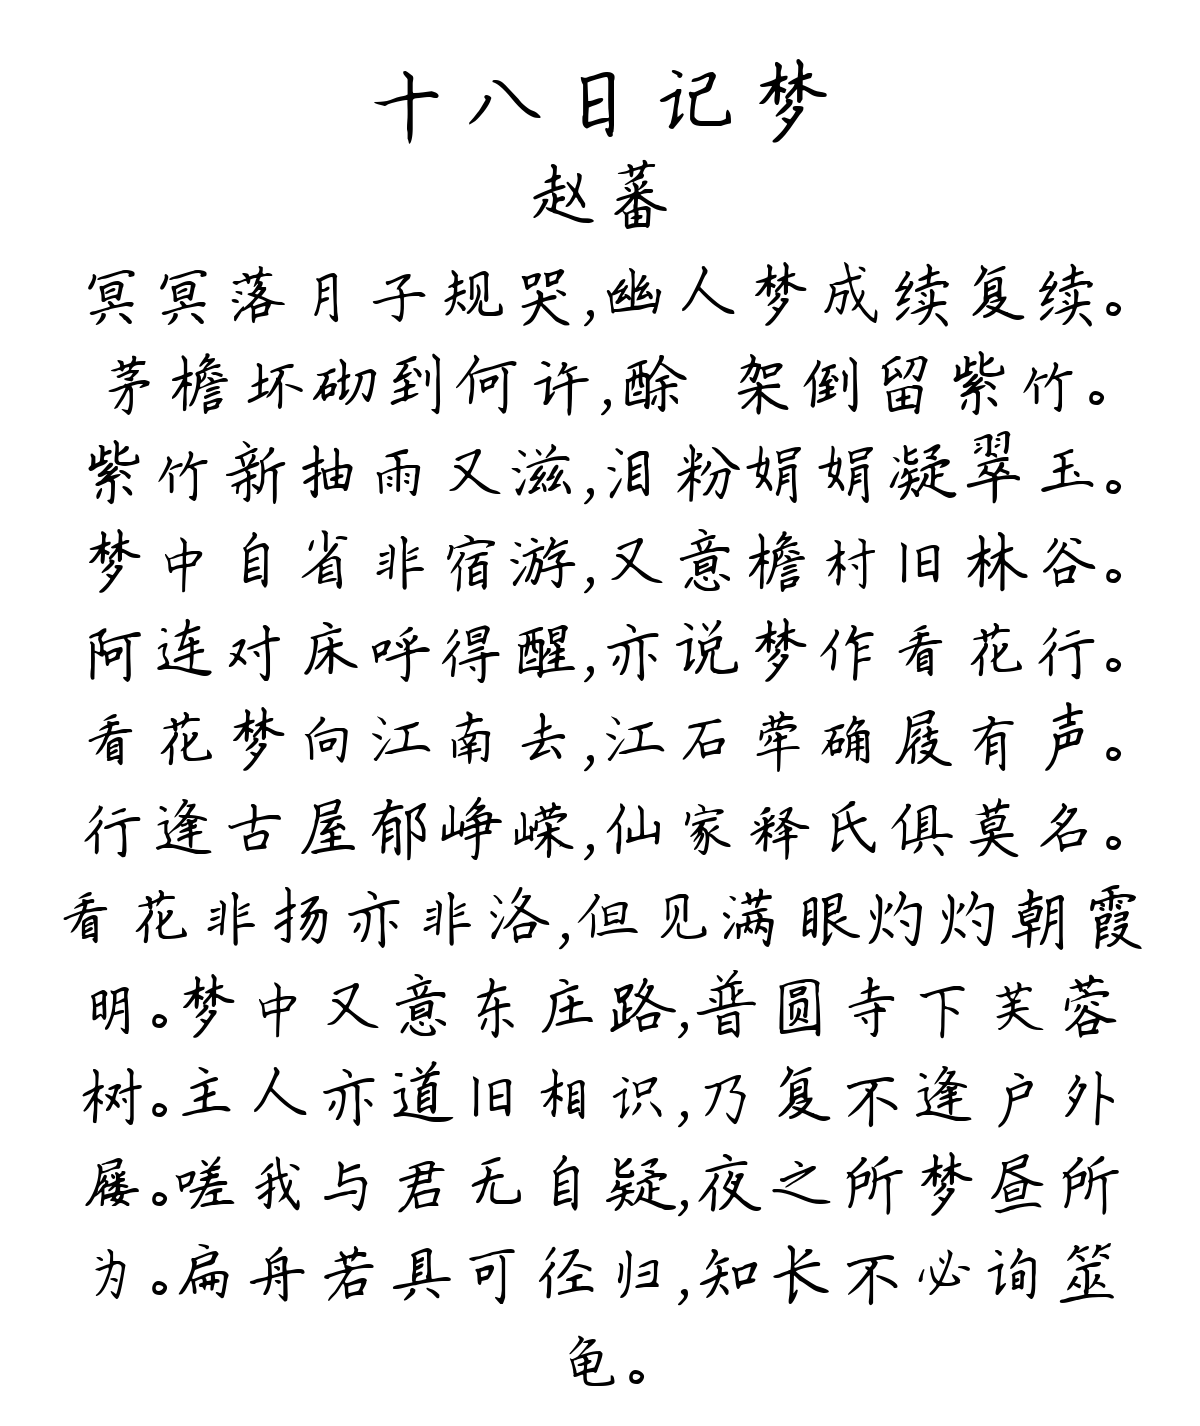 十八日记梦
赵蕃
冥冥落月子规哭,幽人梦成续复续。
茅檐坏砌到何许,酴 架倒留紫竹。
紫竹新抽雨又滋,泪粉娟娟凝翠玉。
梦中自省非宿游,又意檐村旧林谷。
阿连对床呼得醒,亦说梦作看花行。
看花梦向江南去,江石荦确屐有声。
行逢古屋郁峥嵘,仙家释氏俱莫名。
看花非扬亦非洛,但见满眼灼灼朝霞
明。梦中又意东庄路,普圆寺下芙蓉
树。主人亦道旧相识,乃复不逢户外
屦。嗟我与君无自疑,夜之所梦昼所
为。扁舟若具可径归,知长不必询筮
龟。